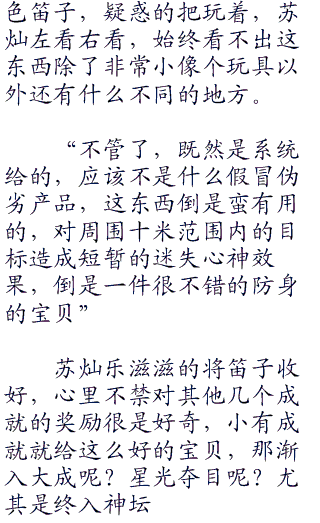 色笛子，疑惑的把玩着，苏
灿左看右看，始终看不出这
东西除了非常小像个玩具以
外还有什么不同的地方。
“不管了，既然是系统
给的，应该不是什么假冒伪
劣产品，这东西倒是蛮有用
的，对周围十米范围内的目
标造成短暂的迷失心神效
果，倒是一件很不错的防身
的宝贝”
苏灿乐滋滋的将笛子收
好，心里不禁对其他几个成
就的奖励很是好奇，小有成
就就给这么好的宝贝，那渐
入大成呢？星光夺目呢？尤
其是终入神坛